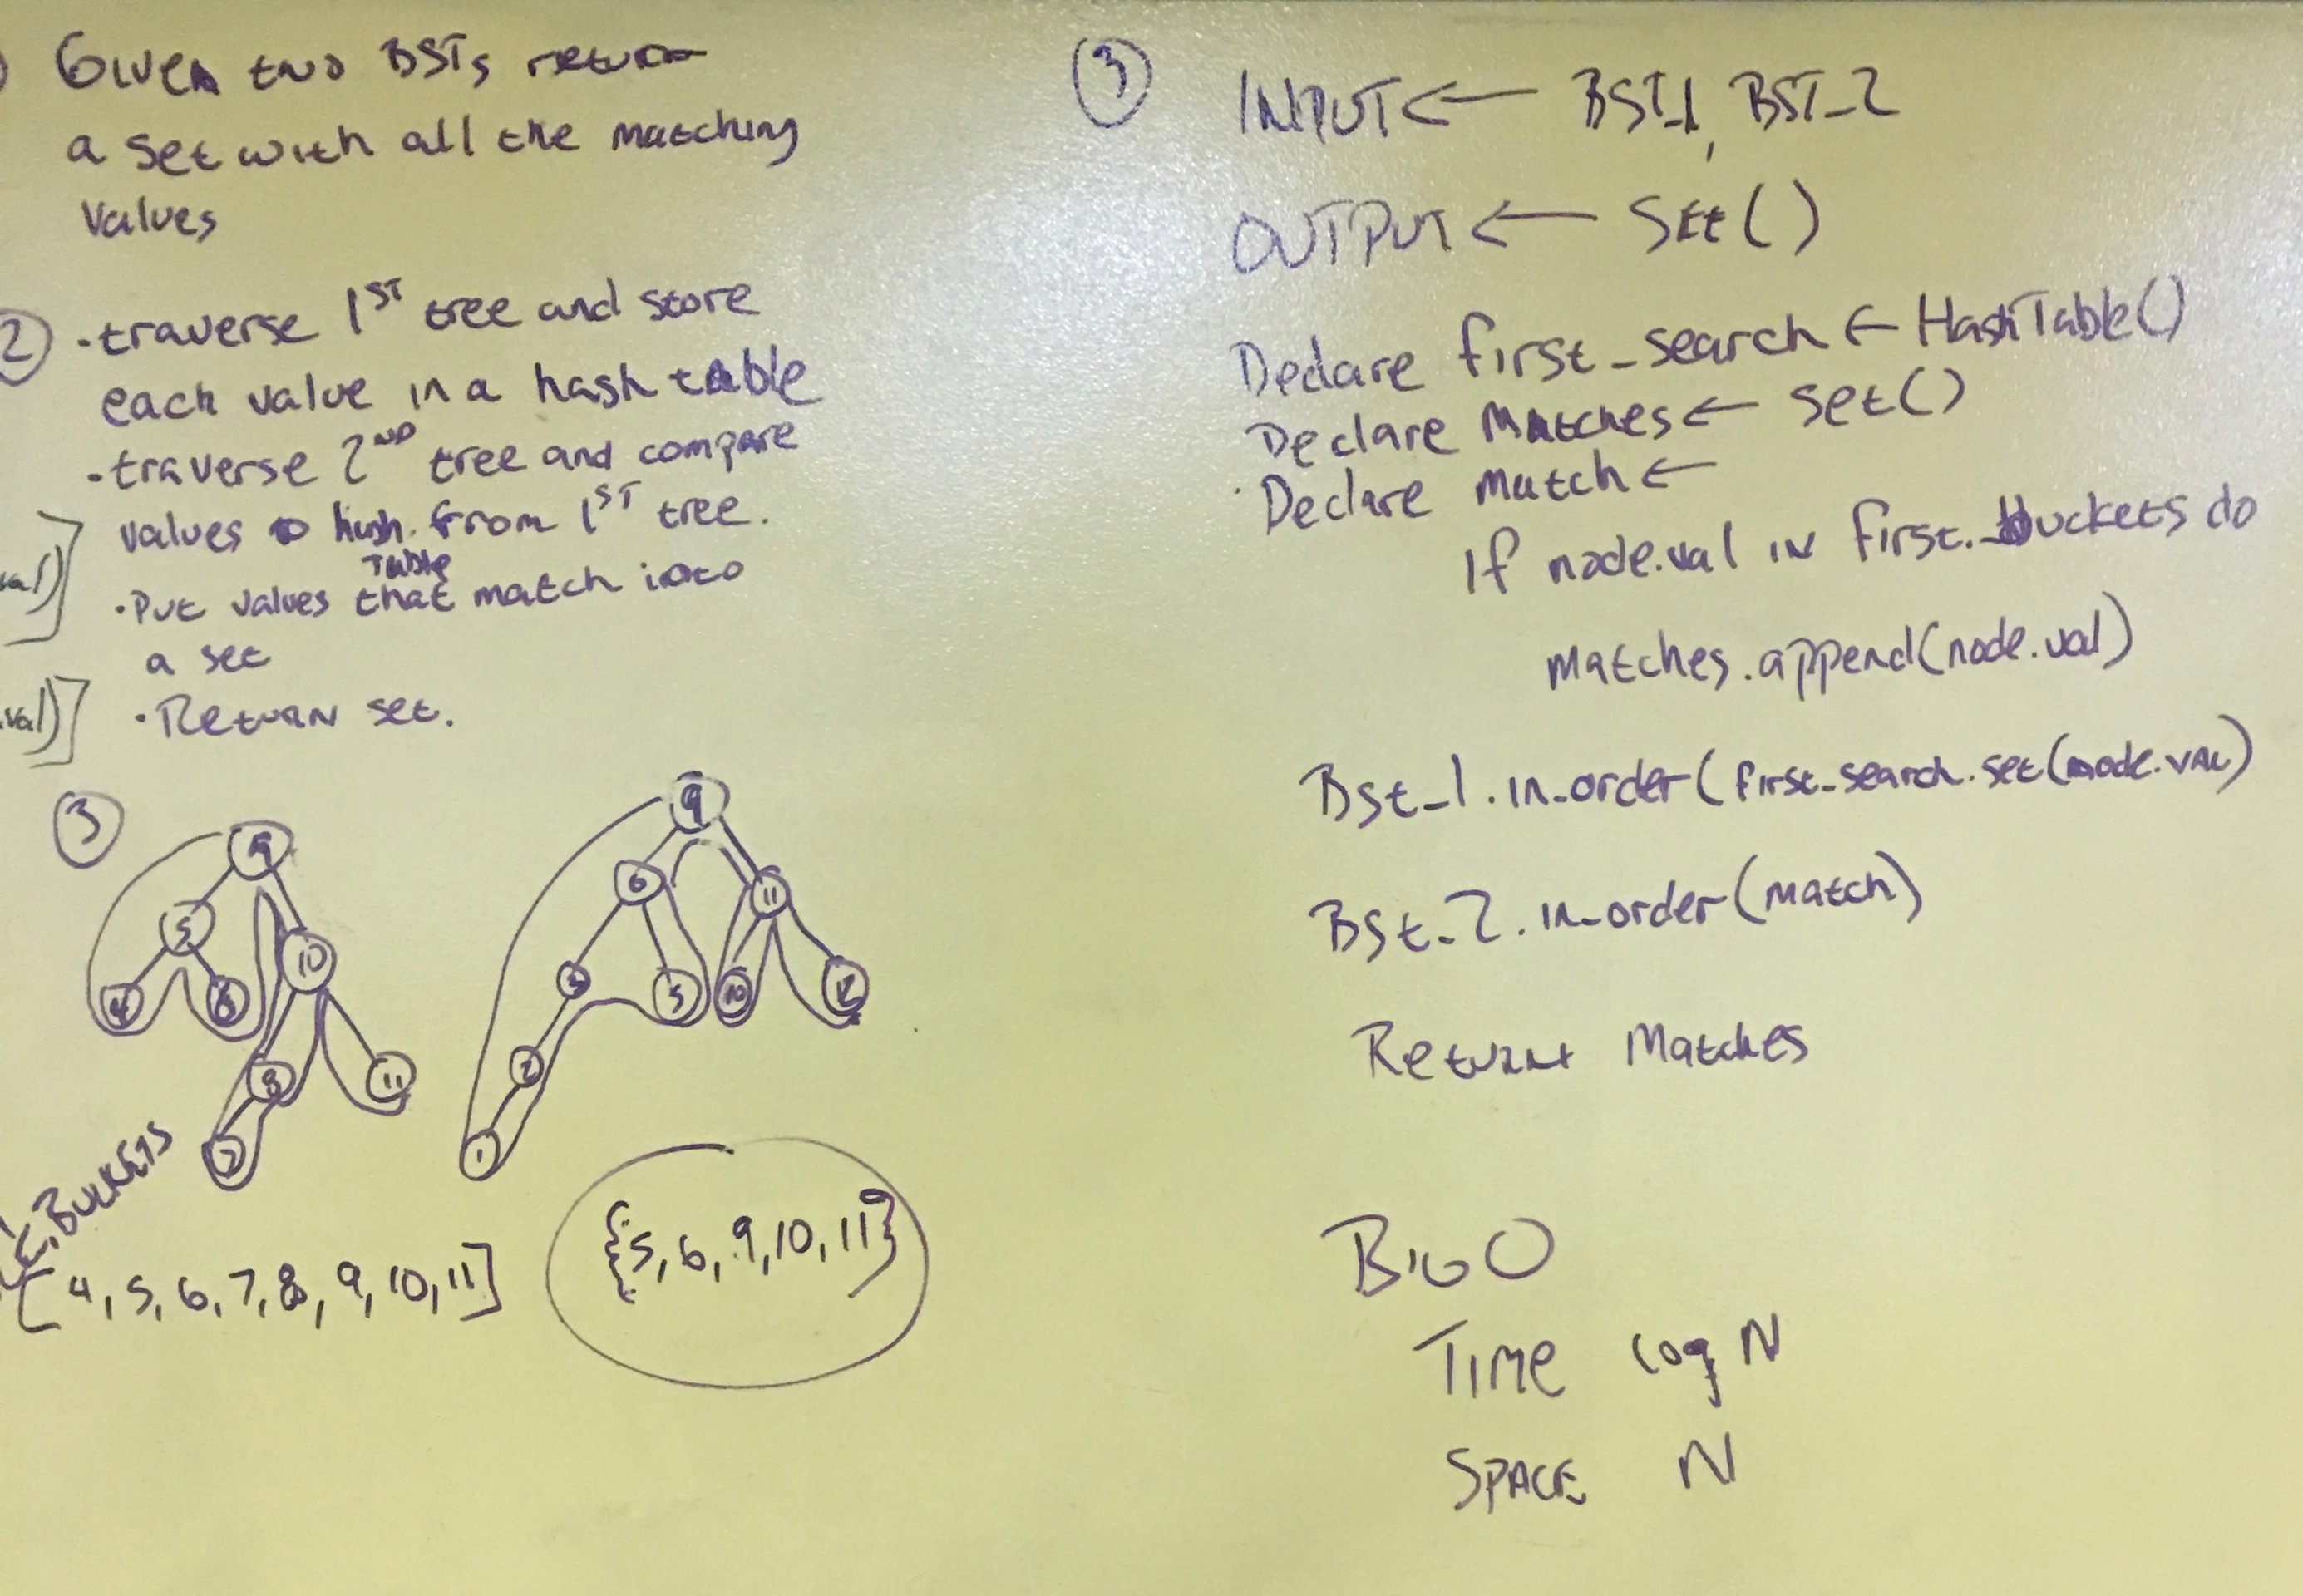 Given two BSTs return
a set with all the matching
values
2
· traverse 1ST tree and store
each value in a hash table
· traverse 2ND tree and compare
values to hash from 1ST tree.
Table
· Put values that match into
a set
· Return set.
val)]
val)]
3
9
5
10
4
6
8
11
7
9
6
11
5
10
12
2
1
Buckets
[4, 5, 6, 7, 8, 9, 10, 11]
{5, 6, 9, 10, 11}
3
INPUT ← BST_1, BST_2
OUTPUT ← Set()
Declare first_search ← HashTable()
Declare Matches ← set()
Declare match ←
If node.val in first._buckets do
Matches.append(node.val)
Bst_1.in_order(first_search.set(node.val)
Bst_2.in_order(match)
Return Matches
Big O
Time log N
Space N